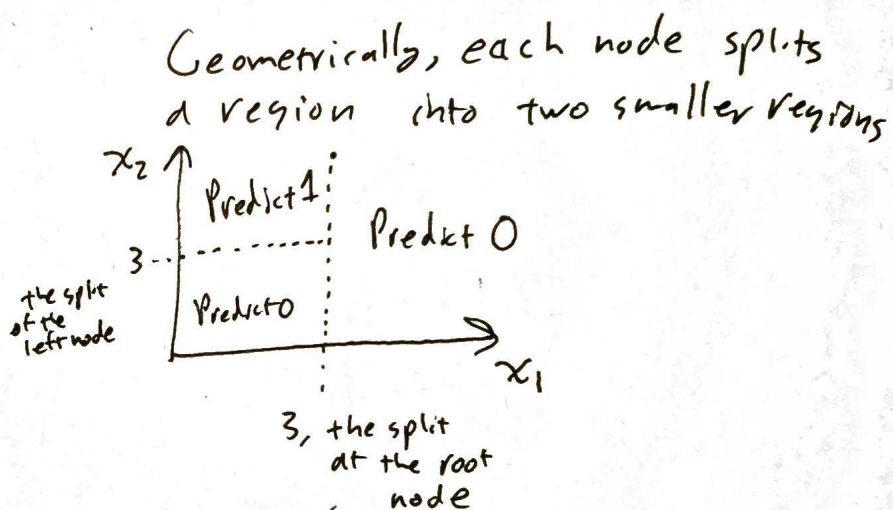 Geometrically, each node splits
a region into two smaller regions
x₂
Predict 1
Predict 0
3
the split
at the
left node
Predict 0
x₁
3, the split
at the root
node